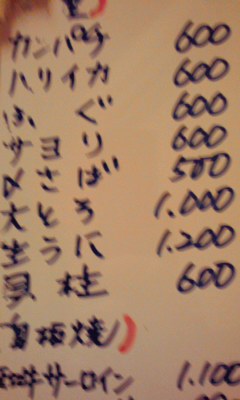 カンパチ 600
ハリイカ 600
ふぐ 600
サヨリ 600
〆さば 500
大とろ 1.000
生うに 1.200
貝柱 600
板焼)
和牛サーロイン 1.100